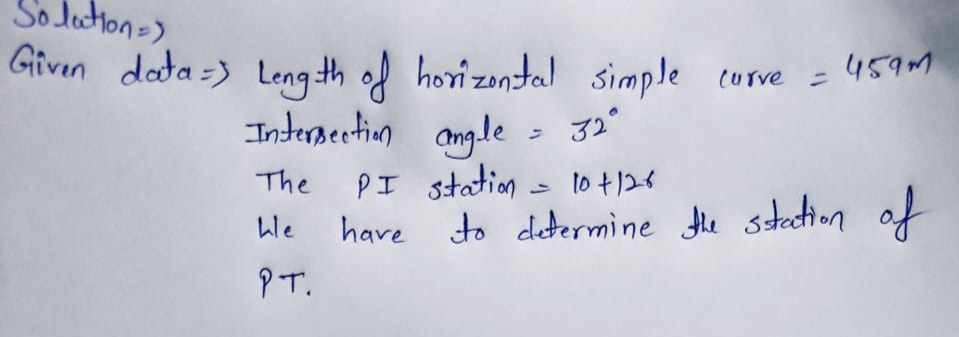 Solution=>
Given data=> Length of horizontal simple curve = 459m
Intersection angle = 32°
The PI station = 10+126
We have to determine the station of
PT.